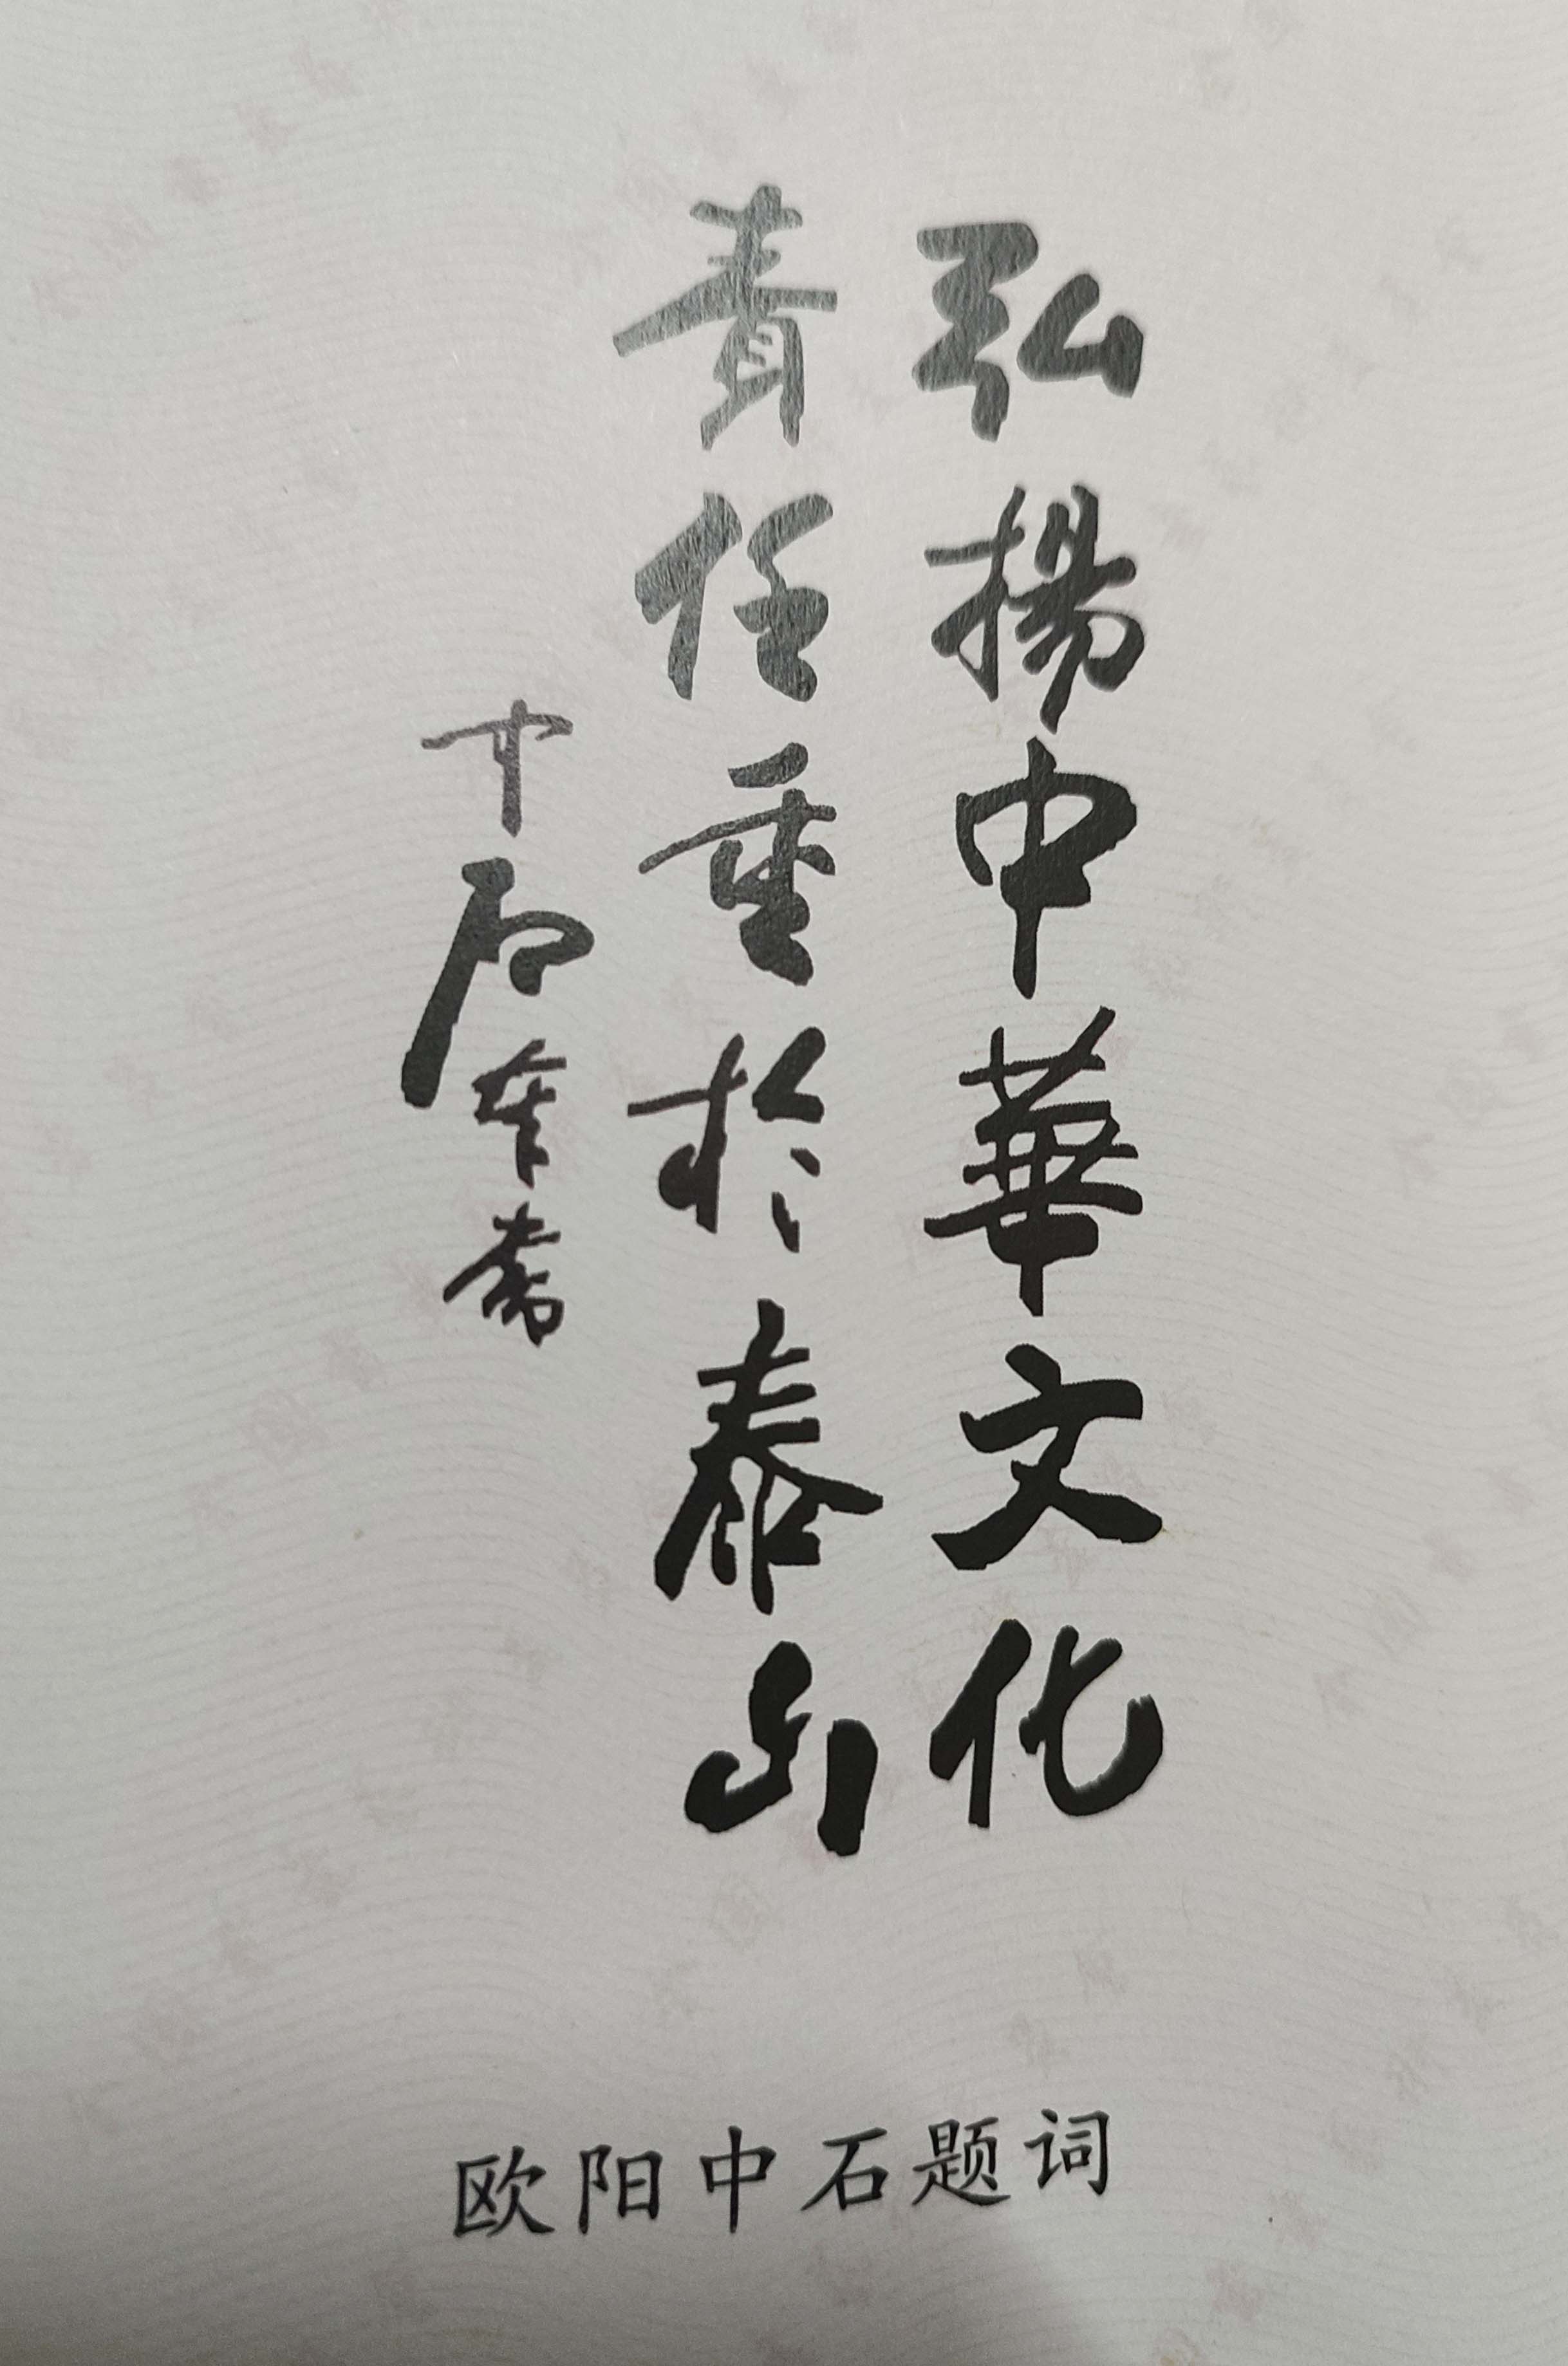 弘揚中華文化
責任重於泰山
中石
欧阳中石题词